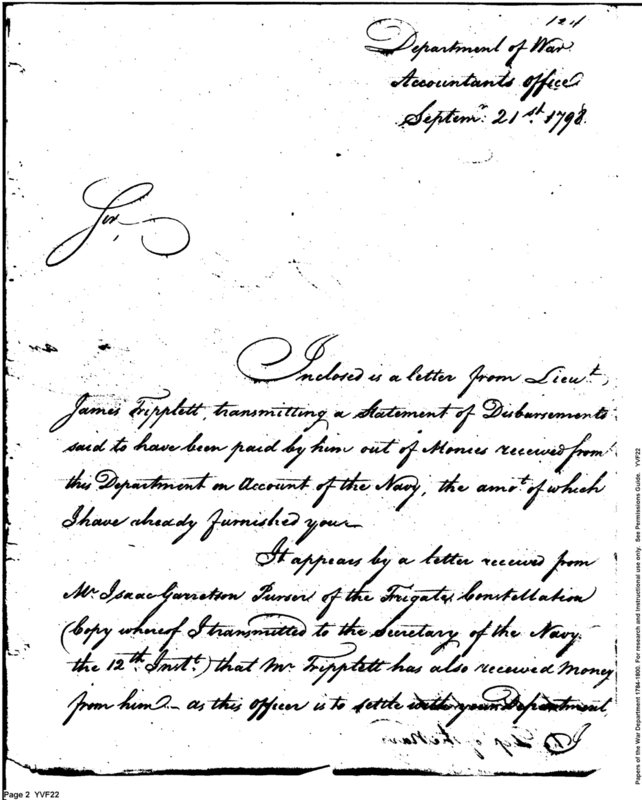 124
Department of War
Accountants Office
Septemr. 21st. 1798.
Sir,
Inclosed is a letter from Lieut.
James Tripplett, transmitting a Statement of Disbursements
said to have been paid by him out of Monies received from
this Department on Account of the Navy, the amot. of which
I have already furnished you
It appears by a letter received from
Mr. Isaac Garretson Purser of the Frigate Constellation
(Copy whereof I transmitted to the Secretary of the Navy
the 12th. Inst.) that Mr. Tripplett has also received Money
from him — as this officer is to settle with your Department
I
Page 2 YVF22
Papers of the War Department 1784-1800. For research and instructional use only. See Permissions Guide. YVF22